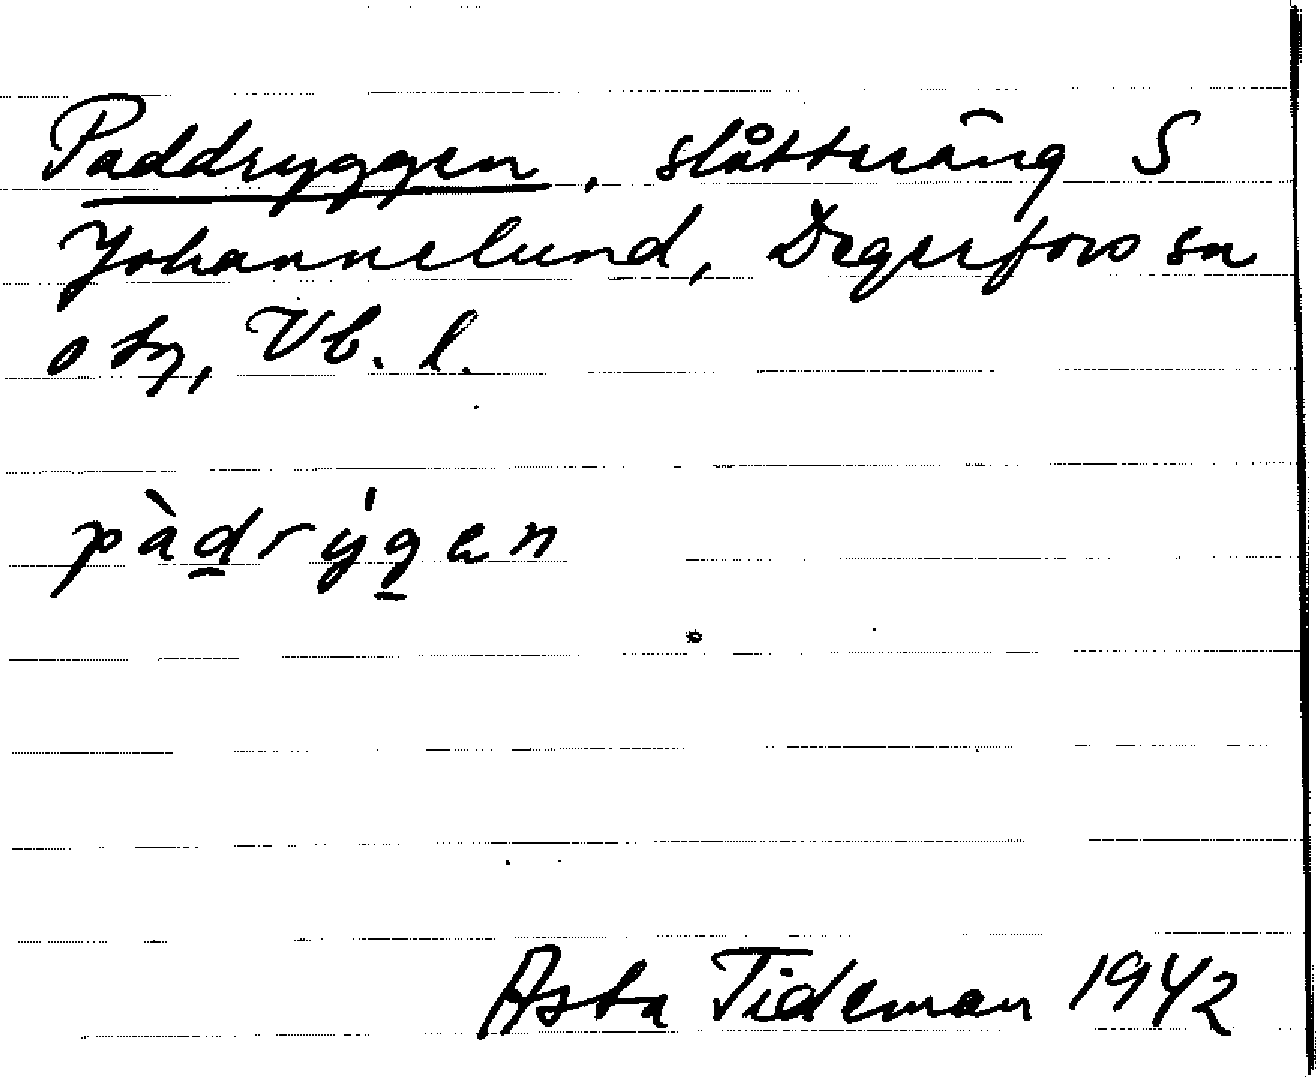 Paddryggen, slåtteräng S
Johannelund, Degerfors sn
o tg, Vb. l.
pàdrýgen
Asta Tideman 1942